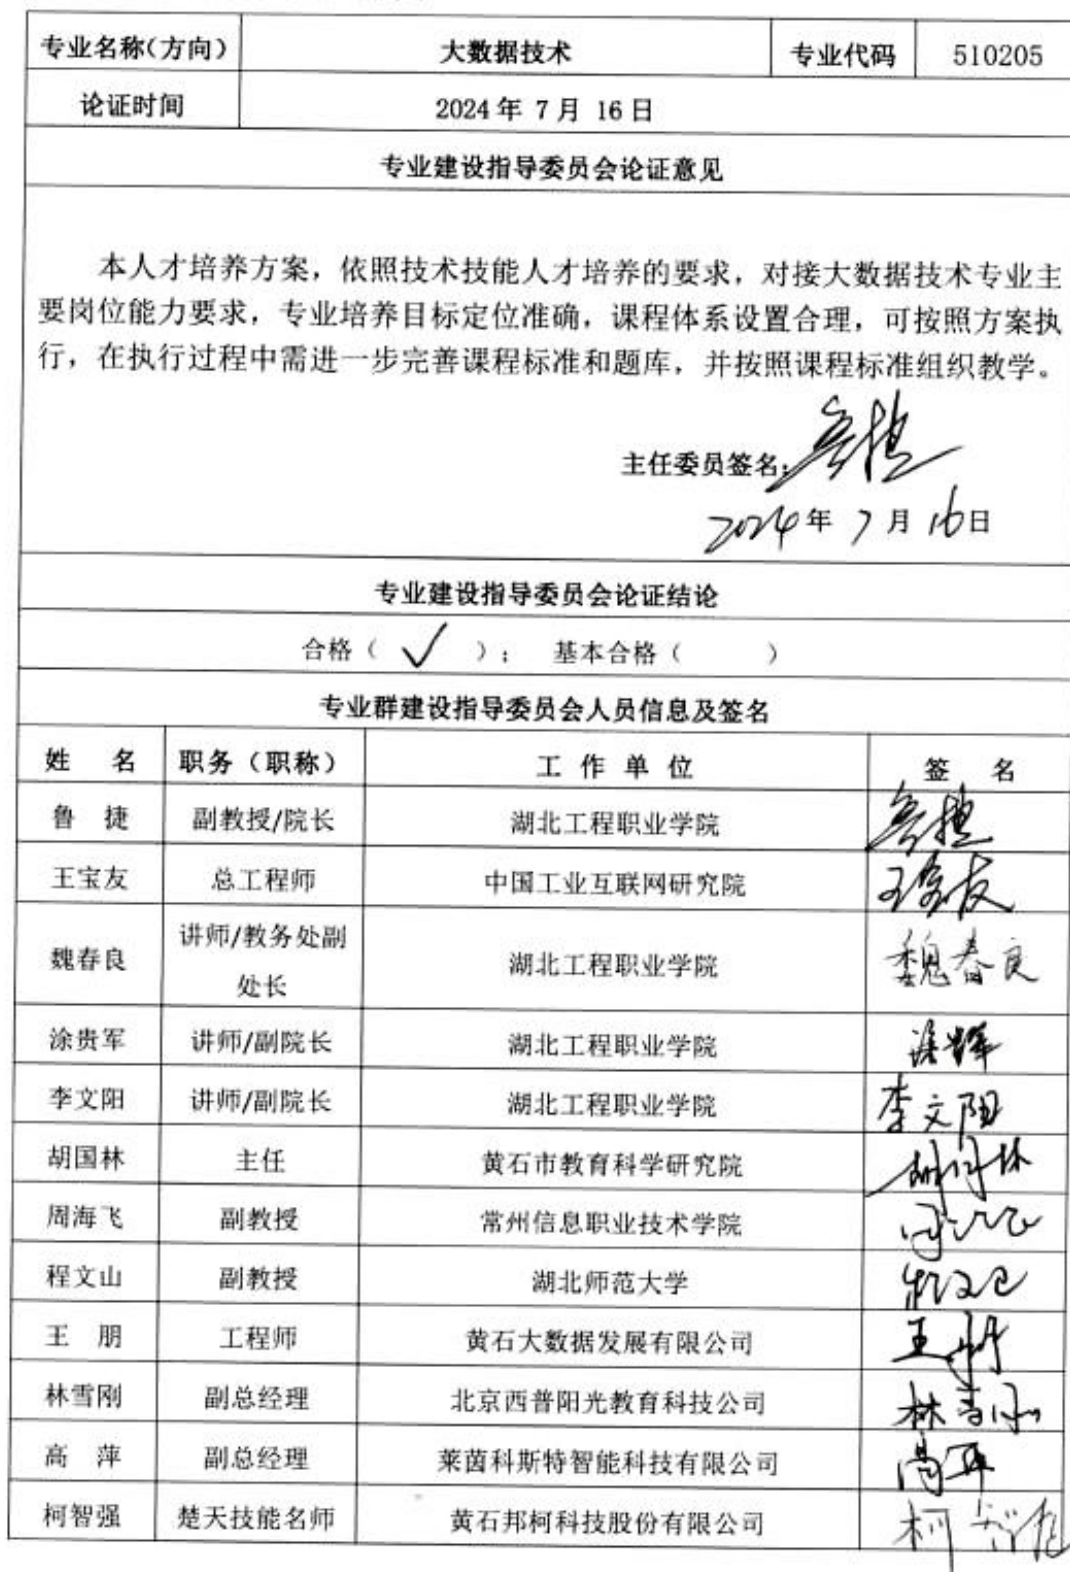 专业名称(方向) 大数据技术 专业代码 510205
论证时间 2024年 7月 16日
专业建设指导委员会论证意见
本人才培养方案，依照技术技能人才培养的要求，对接大数据技术专业主
要岗位能力要求，专业培养目标定位准确，课程体系设置合理，可按照方案执
行，在执行过程中需进一步完善课程标准和题库，并按照课程标准组织教学。
主任委员签名: 鲁捷
2024年 7月 16日
专业建设指导委员会论证结论
合格（ ✓ ）； 基本合格（ ）
专业群建设指导委员会人员信息及签名
姓 名 职务（职称） 工 作 单 位 签 名
鲁 捷 副教授/院长 湖北工程职业学院 鲁捷
王宝友 总工程师 中国工业互联网研究院 王宝友
魏春良 讲师/教务处副 湖北工程职业学院 魏春良
处长
涂贵军 讲师/副院长 湖北工程职业学院
李文阳 讲师/副院长 湖北工程职业学院 李文阳
胡国林 主任 黄石市教育科学研究院 胡国林
周海飞 副教授 常州信息职业技术学院 周海飞
程文山 副教授 湖北师范大学 程文山
王 朋 工程师 黄石大数据发展有限公司 王朋
林雪刚 副总经理 北京西普阳光教育科技公司 林雪刚
高 萍 副总经理 莱茵科斯特智能科技有限公司 高萍
柯智强 楚天技能名师 黄石邦柯科技股份有限公司 柯智强